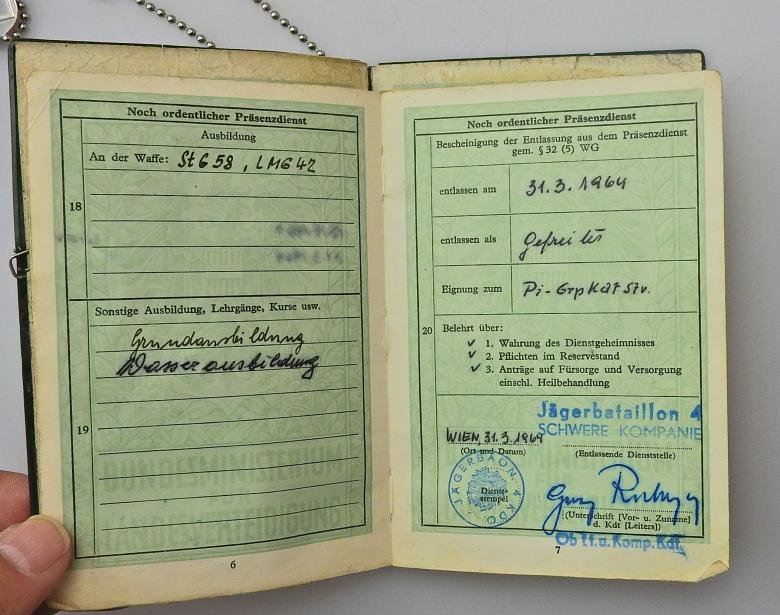 Noch ordentlicher Präsenzdienst
Ausbildung
An der Waffe: StG 58, LMG 42
18
Sonstige Ausbildung, Lehrgänge, Kurse usw.
Grundausbildung
Wasserausbildung
19
6
Noch ordentlicher Präsenzdienst
Bescheinigung der Entlassung aus dem Präsenzdienst
gem. § 32 (5) WG
entlassen am 31.3.1964
entlassen als Gefreiter
Eignung zum Pi-GrpKdtStv.
20
Belehrt über:
✓ 1. Wahrung des Dienstgeheimnisses
✓ 2. Pflichten im Reservestand
✓ 3. Anträge auf Fürsorge und Versorgung
einschl. Heilbehandlung
Jägerbataillon 4
SCHWERE KOMPANIE
WIEN, 31.3.1964
(Ort und Datum)
(Entlassende Dienststelle)
JÄGERBAON 4 KDO
Dienst-
stempel
(Unterschrift [Vor- u. Zuname]
d. Kdt [Leiters])
Oblt.u.Komp.Kdt.
7